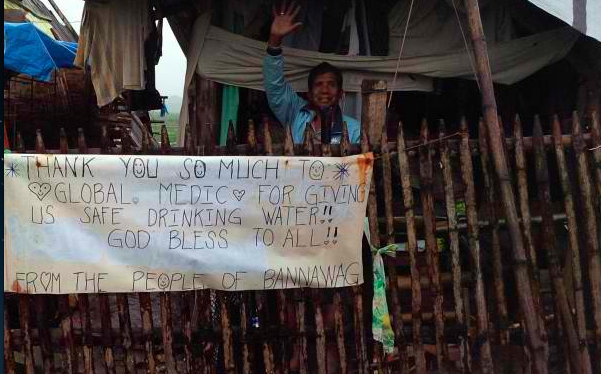 THANK YOU SO MUCH TO
GLOBAL. MEDIC FOR GIVING
US SAFE DRINKING WATER!!
GOD BLESS TO ALL!!
FROM THE PEOPLE OF BANNAWAG